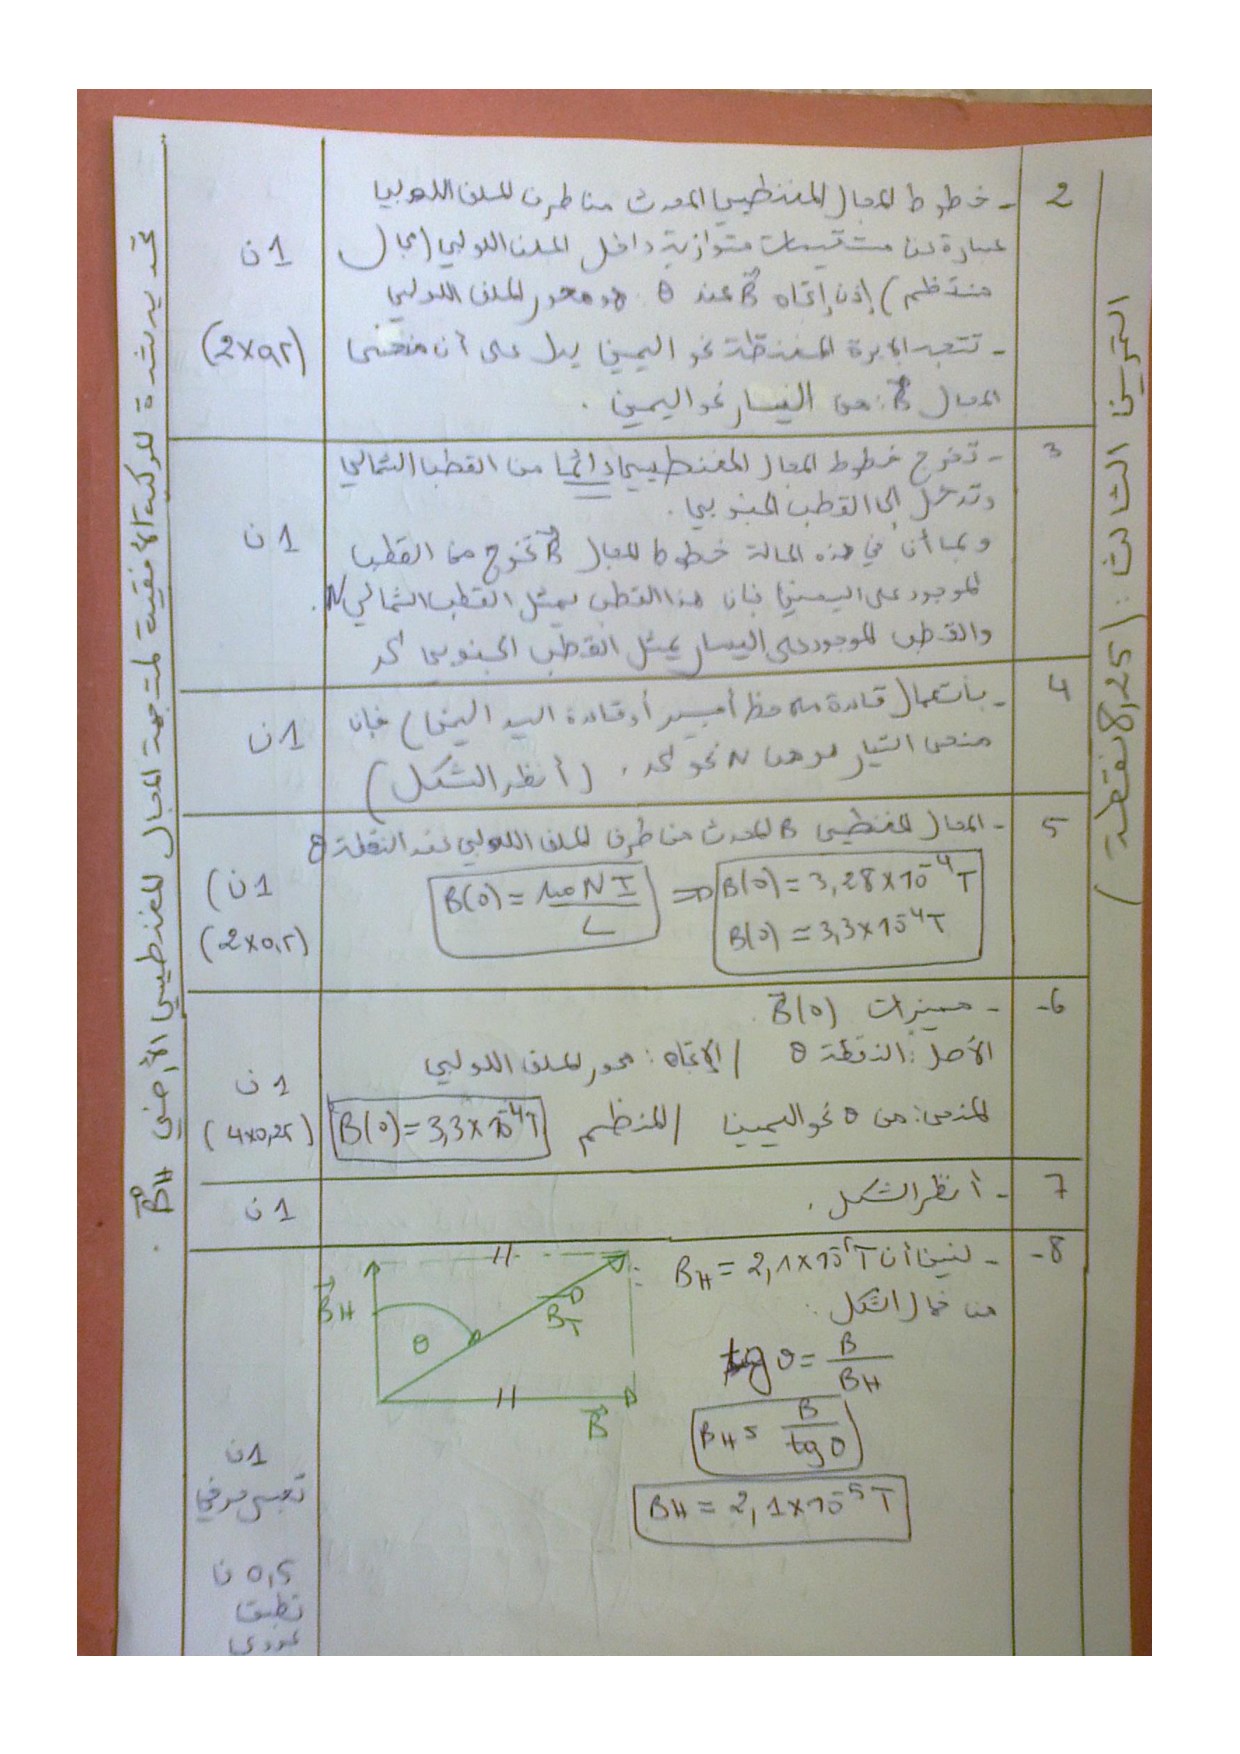 التمرين الثالث: (8,25 نقطة)
2
- خطوط المجال المغنطيسي المحدث من طرف الملف اللولبي
عبارة عن مستقيمات متوازية داخل الملف اللولبي (مجال
منتظم) إذن إتجاه B⃗ عند O هو محور الملف اللولبي
- تتجه الإبرة الممغنطة نحو اليمين يدل على أن منحى
المجال B⃗: من اليسار نحو اليمين.
1ن
(2x0,5)
3
- تخرج خطوط المجال المغنطيسي دائما من القطب الشمالي
وتدخل إلى القطب الجنوبي.
وبما أن في هذه الحالة خطوط المجال B⃗ تخرج من القطب
الموجود على اليمين فإن هذا القطب يمثل القطب الشمالي N.
والقطب الموجود على اليسار يمثل القطب الجنوبي
1ن
4
- بإستعمال قاعدة ملاحظ أمبير أو قاعدة اليد اليمنى) فإن
منحى التيار هو من N نحو (أنظر الشكل)
1ن
5
- المجال المغنطيسي B المحدث من طرف الملف اللولبي عند النقطة O
B(0) = μ₀NI/L ⇒ B(0) = 3,28x10⁻⁴T
B(0) ≃ 3,3x10⁻⁴T
1ن)
(2x0,5)
6-
- مميزات B⃗(0).
الأصل: النقطة O / الإتجاه: محور الملف اللولبي
المنحى: من O نحو اليمين / المنظم B(0) = 3,3x10⁻⁴T
1ن
(4x0,25)
7
- أنظر الشكل.
1ن
8-
- لنبين أن B_H = 2,1x10⁻⁵T
من خلال الشكل:
tg θ = B/B_H
B_H = B/tg θ
B_H = 2,1x10⁻⁵T
B⃗_H
θ
B⃗_T
B⃗
1ن
تعبير حرفي
0,5 ن
تطبيق
عددي
تحديد شدة المركبة الأفقية لمتجهة المجال المغنطيسي الأرضي B⃗_H.